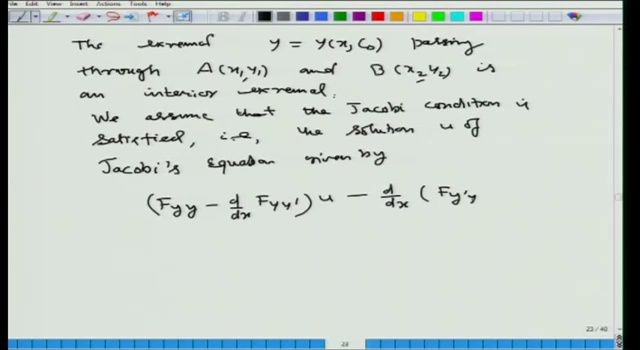 File Edit View Insert Actions Tools Help
The extremal y = y(x, C₀) passing
through A(x₁, y₁) and B(x₂, y₂) is
an interior extremal.
We assume that the Jacobi condition is
satisfied, i.e., the solution u of
Jacobi's Equation given by
(Fyy − d/dx Fyy')u − d/dx (Fy'y
23 / 40
23